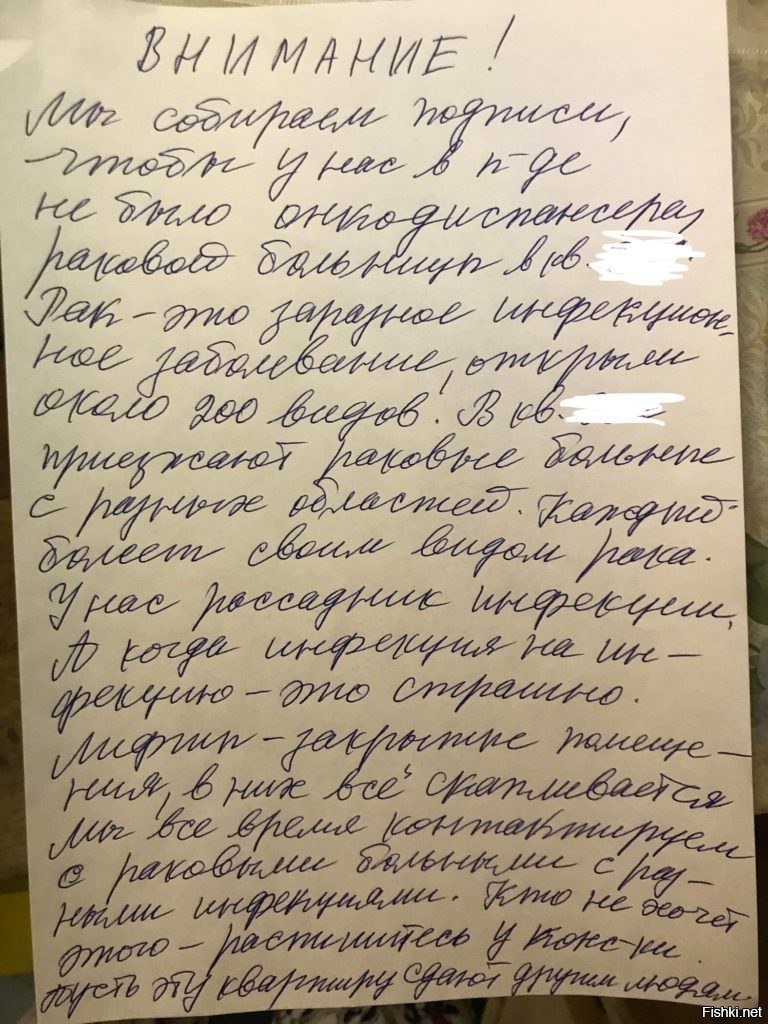 ВНИМАНИЕ!
Мы собираем подписи,
чтобы у нас в п-де
не было онкодиспансера,
раковой больницы в кв.
Рак - это заразное инфекцион-
ное заболевание, открыли
около 200 видов. В кв.
приезжают раковые больные
с разных областей. Каждый
болеет своим видом рака.
У нас рассадник инфекции.
А когда инфекция на ин-
фекцию - это страшно.
Лифты - закрытые помеще-
ния, в них всё скапливается
Мы все время контактируем
с раковыми больными с раз-
ными инфекциями. Кто не хочет
этого - распишитесь у конс-ки.
Пусть эту квартиру сдают другим людям
Fishki.net